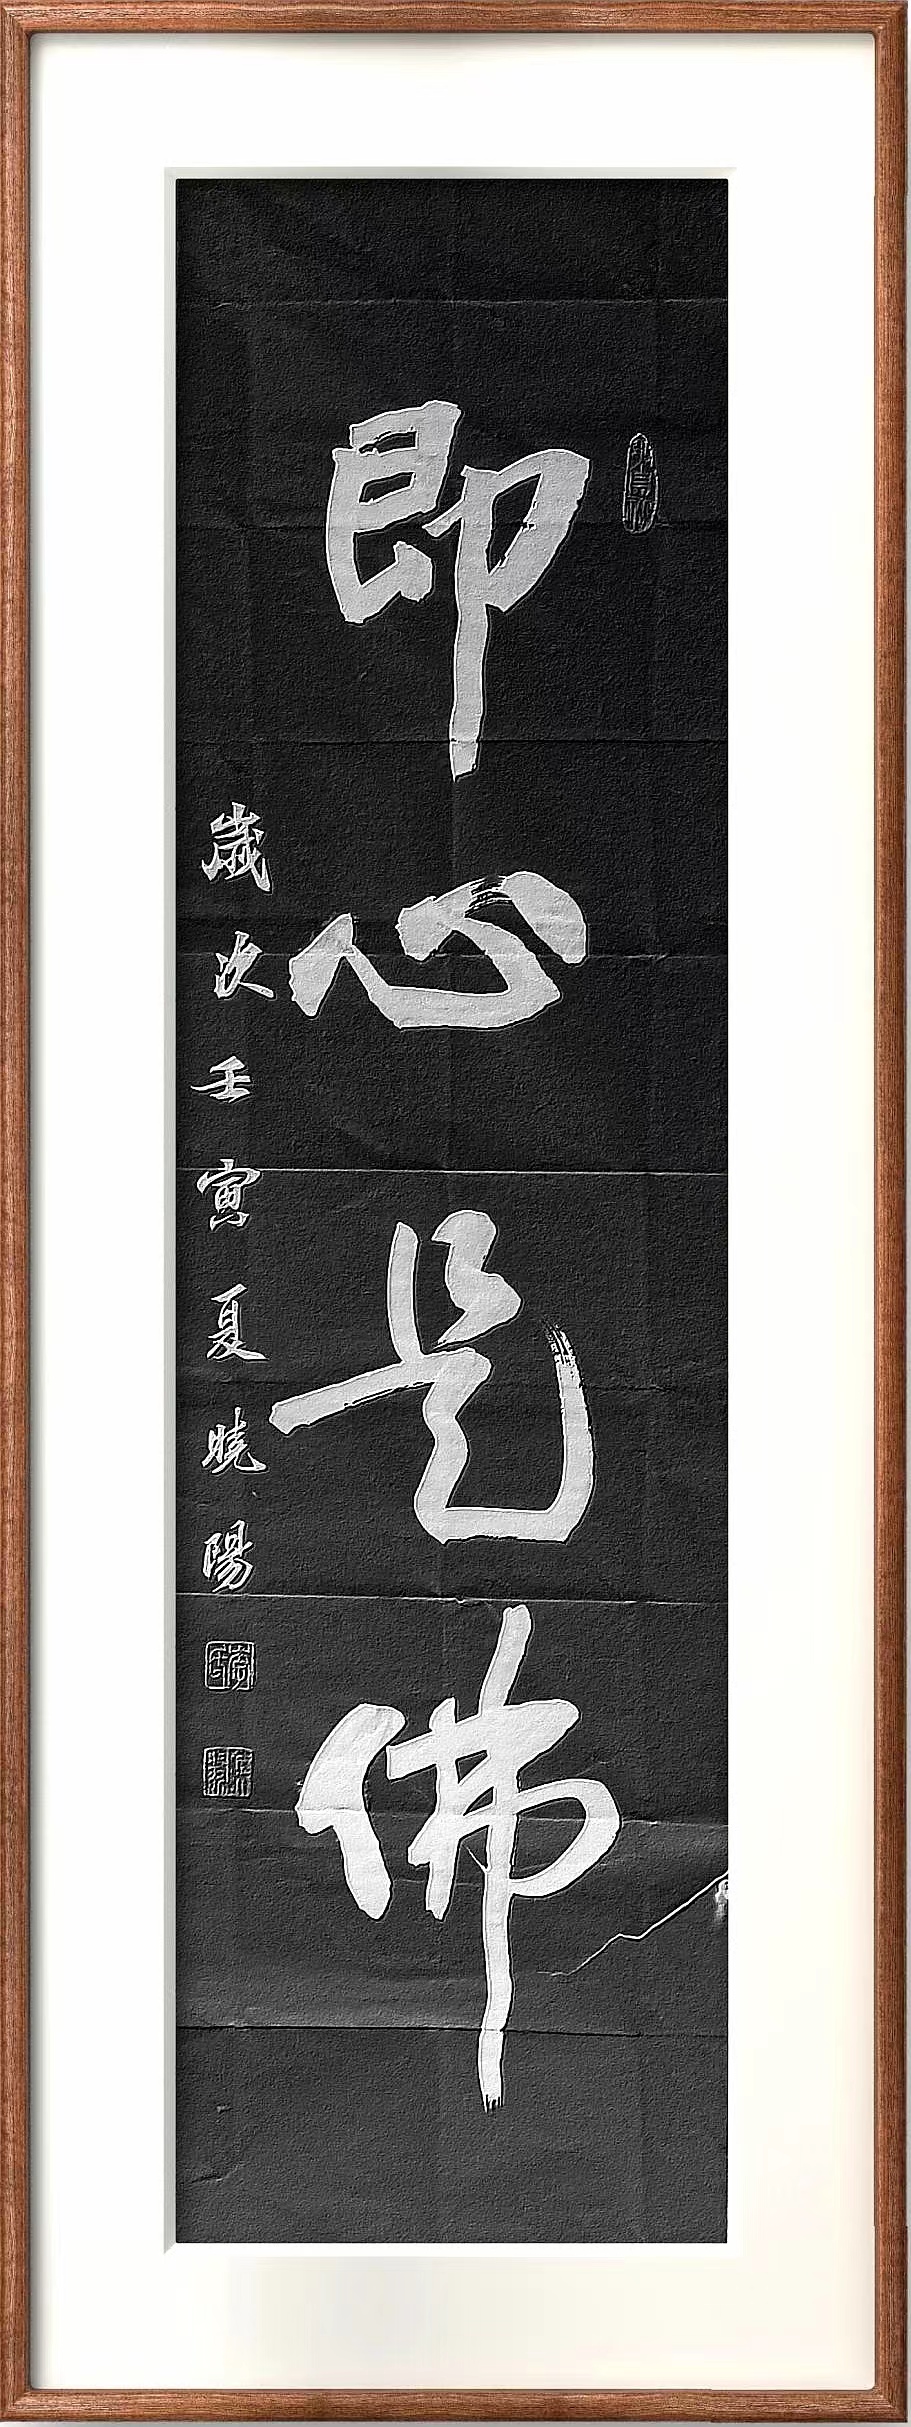 即心是佛
歲次壬寅夏曉陽